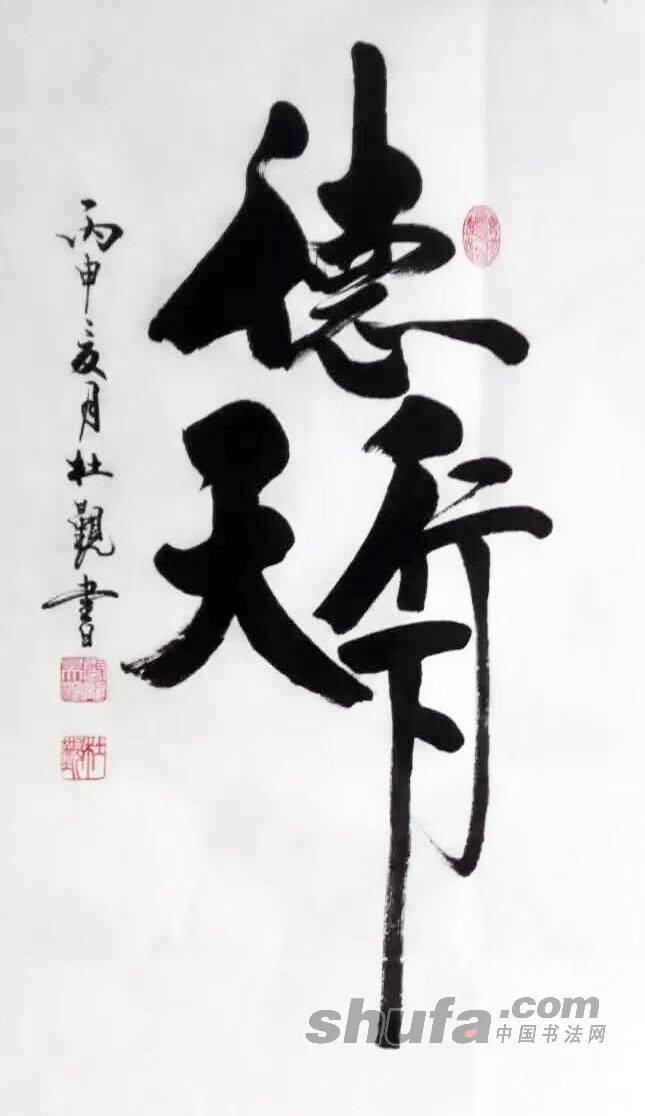 德行天下
丙申亥月杜觀書
杜觀
shufa.com
中国书法网